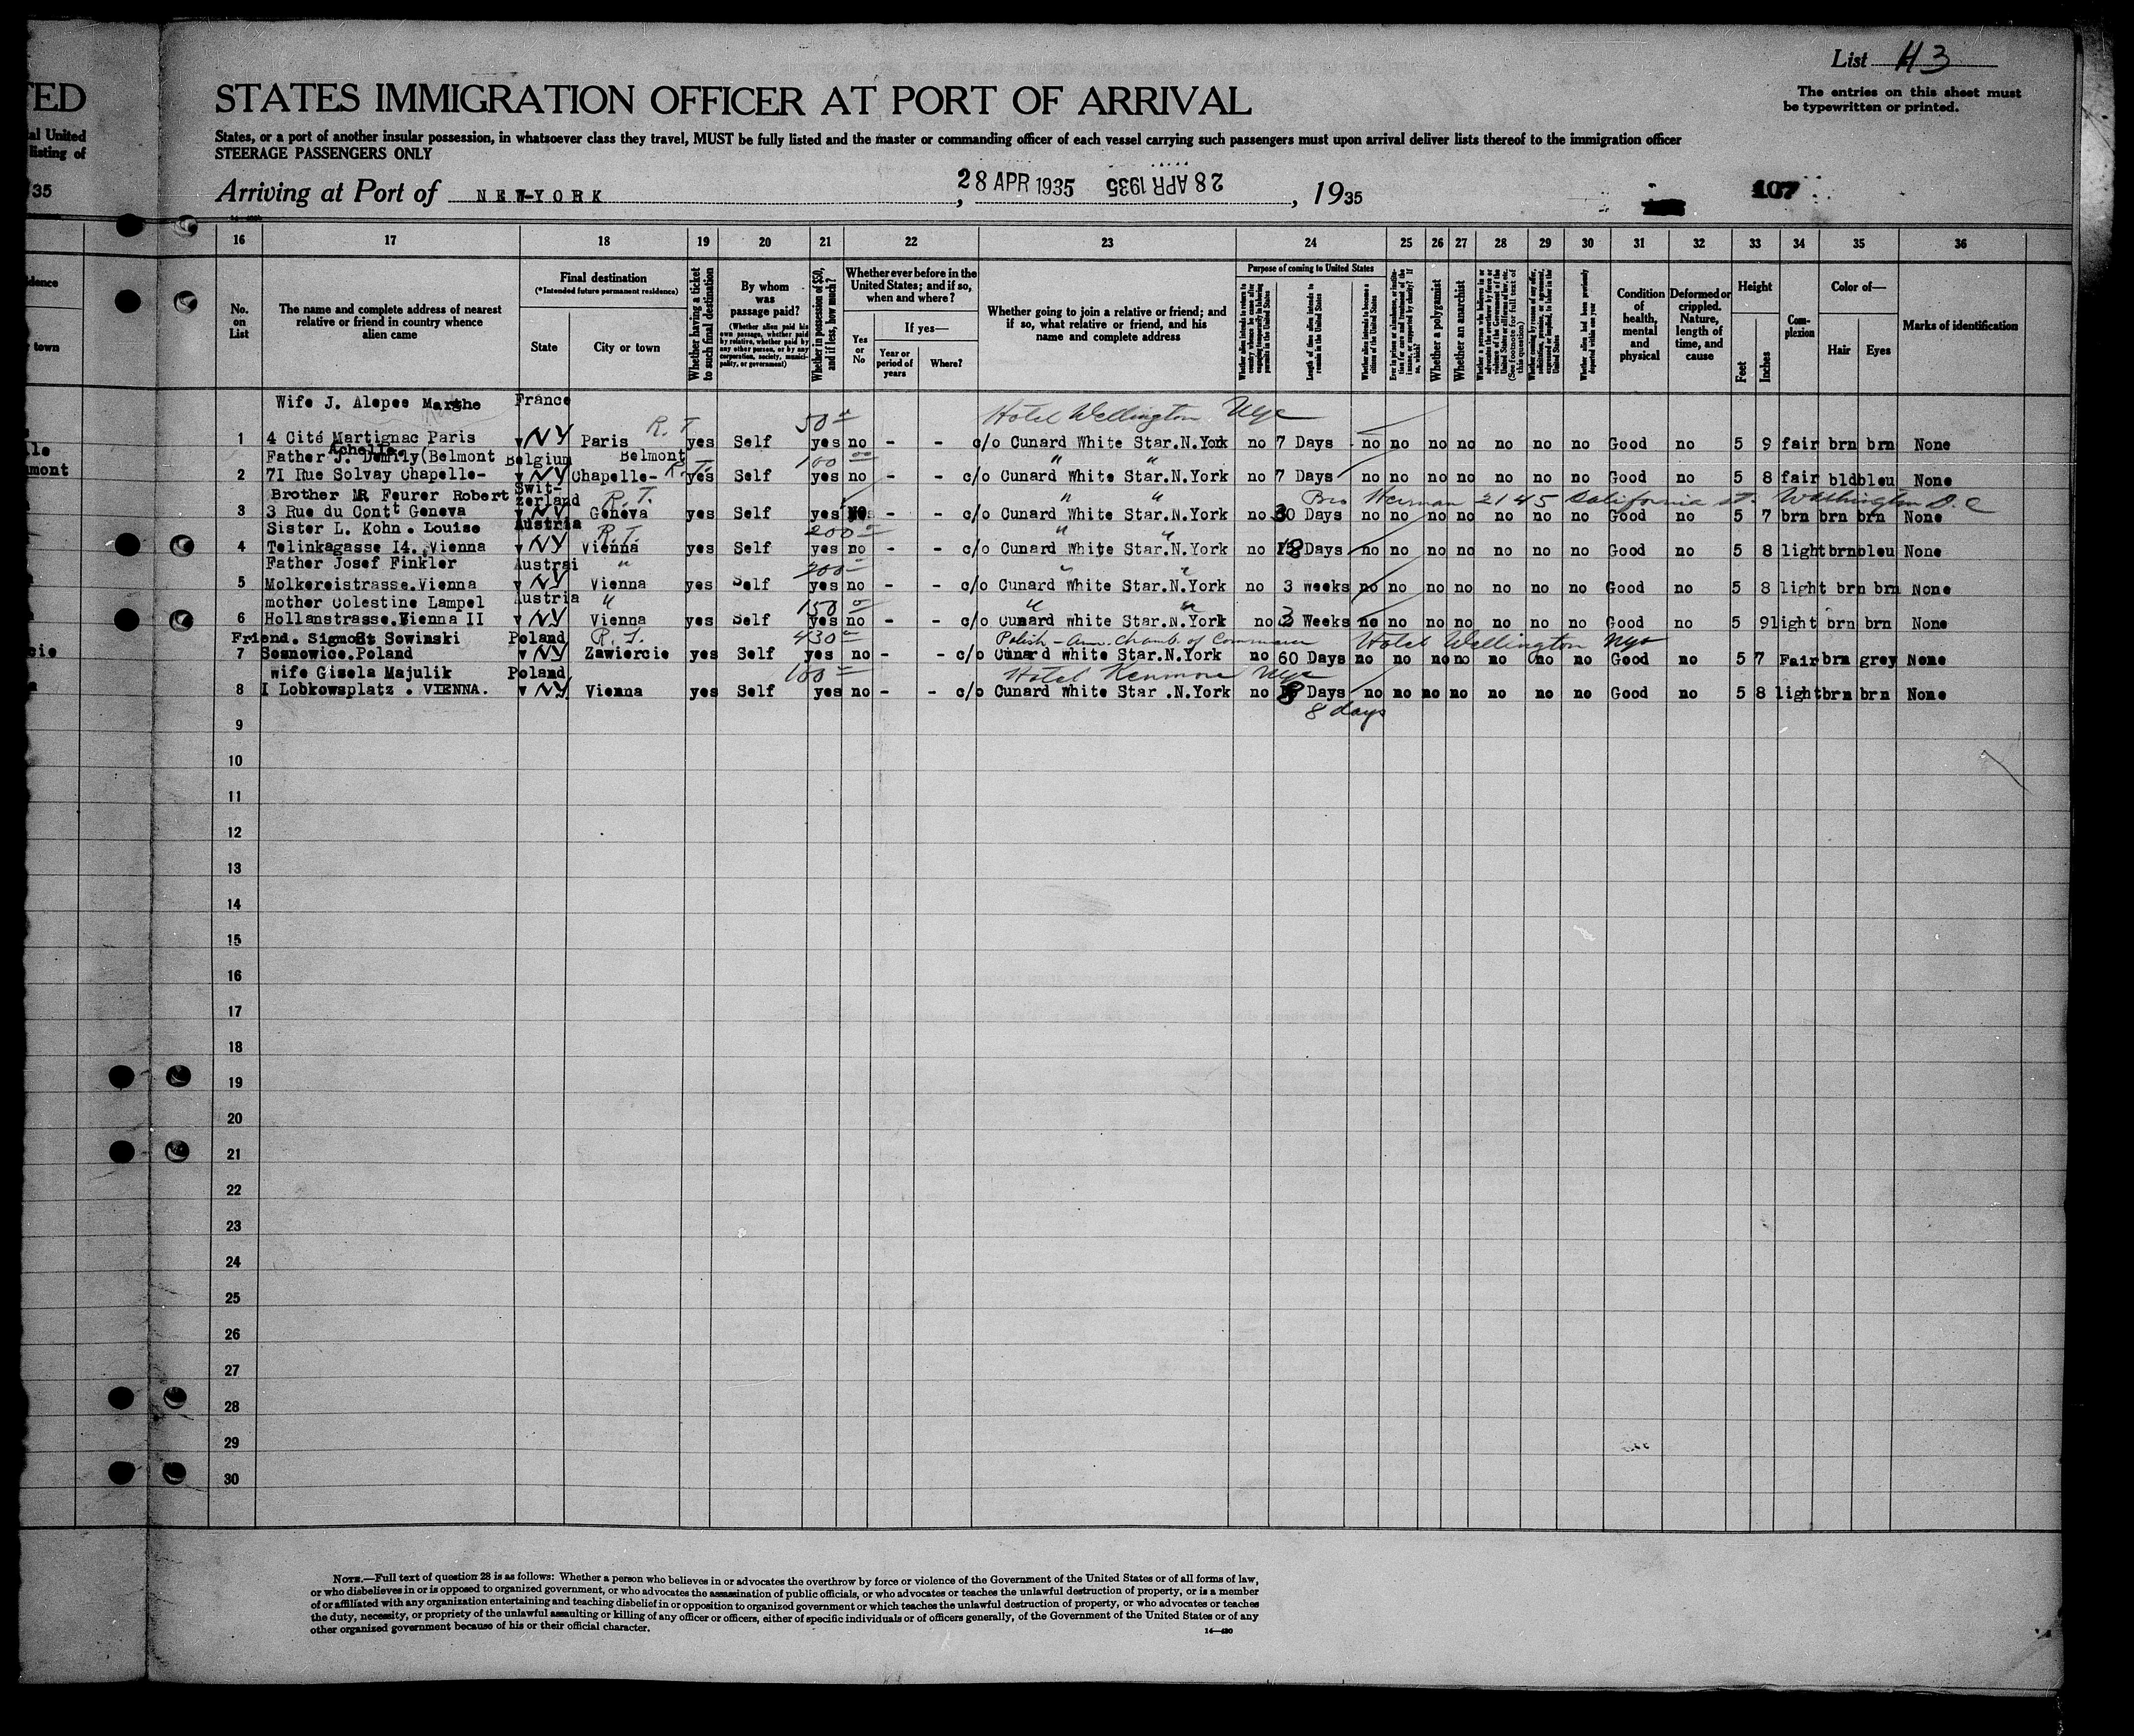 List 43
The entries on this sheet must
be typewritten or printed.
TED
STATES IMMIGRATION OFFICER AT PORT OF ARRIVAL
al United
listing of
States, or a port of another insular possession, in whatsoever class they travel, MUST be fully listed and the master or commanding officer of each vessel carrying such passengers must upon arrival deliver lists thereof to the immigration officer
STEERAGE PASSENGERS ONLY
35
Arriving at Port of NEW-YORK, 28 APR 1935 28 APR 1935, 1935
107
16 17 18 19 20 21 22 23 24 25 26 27 28 29 30 31 32 33 34 35 36
No. on List
The name and complete address of nearest relative or friend in country whence alien came
Final destination
(*Intended future permanent residence)
State
City or town
Whether having a ticket to such final destination
By whom was passage paid?
(Whether alien paid his own passage, whether paid by relative, whether paid by any other person, or by any corporation, society, municipality, or government)
Whether in possession of $50, and if less, how much?
Whether ever before in the United States; and if so, when and where?
Yes or No
If yes—
Year or period of years
Where?
Whether going to join a relative or friend; and if so, what relative or friend, and his name and complete address
Purpose of coming to United States
Length of time alien intends to remain in the United States
Whether alien intends to become a citizen of the United States
Whether a polygamist
Whether an anarchist
Condition of health, mental and physical
Deformed or crippled. Nature, length of time, and cause
Height
Feet
Inches
Complexion
Color of—
Hair
Eyes
Marks of identification
Wife J. Alepee Marthe France 50 Hotel Wellington Nyc
1 4 Cité Martignac Paris NY Paris R.T yes Self yes no - - c/o Cunard White Star.N.York no 7 Days no no no no no no no Good no 5 9 fair brn brn None
Achelle.
Father J. Demily(Belmont Belgium Belmont 100 " "
2 71 Rue Solvay Chapelle- NY Chapelle- R.T. yes Self yes no - - c/o Cunard White Star.N.York no 7 Days no no no no no no no Good no 5 8 fair bld bleu None
Brother R Feurer Robert Switzerland R.T. " " Bro Herman 2145 California St. Washington D.C
3 3 Rue du Contt Geneva NY Géneva yes Self yes - - c/o Cunard White Star.N.York no 30 Days no no no no no no no Good no 5 7 brn brn brn None
Sister L. Kohn. Louise Austria R.T. 200 " "
4 Telinkagasse I4. Vienna NY Vienna yes Self yes no - - c/o Cunard White Star.N.York no 18 Days no no no no no no no Good no 5 8 light brn bleu None
Father Josef Finkler Austrai " 200 " "
5 Molkereistrasse.Vienna NY Vienna yes Self yes no - - c/o Cunard White Star.N.York no 3 weeks no no no no no no no Good no 5 8 light brn brn None
mother Colestine Lampel Austria " 150 " "
6 Hollanstrasse.Vienna II NY Vienna yes Self yes no - - c/o Cunard white Star.N.York no 3 Weeks no no no no no no no Good no 5 9 light brn brn None
Friend. Sigmost Sowinski Poland R.T. 430 Polish-Am. Chamb. of Commerce Hotel Wellington Nyc
7 Sosnowice.Poland NY Zawiercie yes Self yes no - - c/o Cunard White Star.N.York no 60 Days no no no no no no no Good no 5 7 Fair brn grey None
wife Gisela Majulik Poland 100 Hotel Kenmore Nyc
8 I Lobkowsplatz . VIENNA. NY Vienna yes Self yes no - - c/o Cunard White Star .N.York no 8 Days no no no no no no no Good no 5 8 light brn brn None
8 days
9
10
11
12
13
14
15
16
17
18
19
20
21
22
23
24
25
26
27
28
29
30
NOTE.—Full text of question 28 is as follows: Whether a person who believes in or advocates the overthrow by force or violence of the Government of the United States or of all forms of law,
or who disbelieves in or is opposed to organized government, or who advocates the assassination of public officials, or who advocates or teaches the unlawful destruction of property, or is a member
of or affiliated with any organization entertaining and teaching disbelief in or opposition to organized government or which teaches the unlawful destruction of property, or who advocates or teaches
the duty, necessity, or propriety of the unlawful assaulting or killing of any officer or officers, either of specific individuals or of officers generally, of the Government of the United States or of any
other organized government because of his or their official character.
14—480